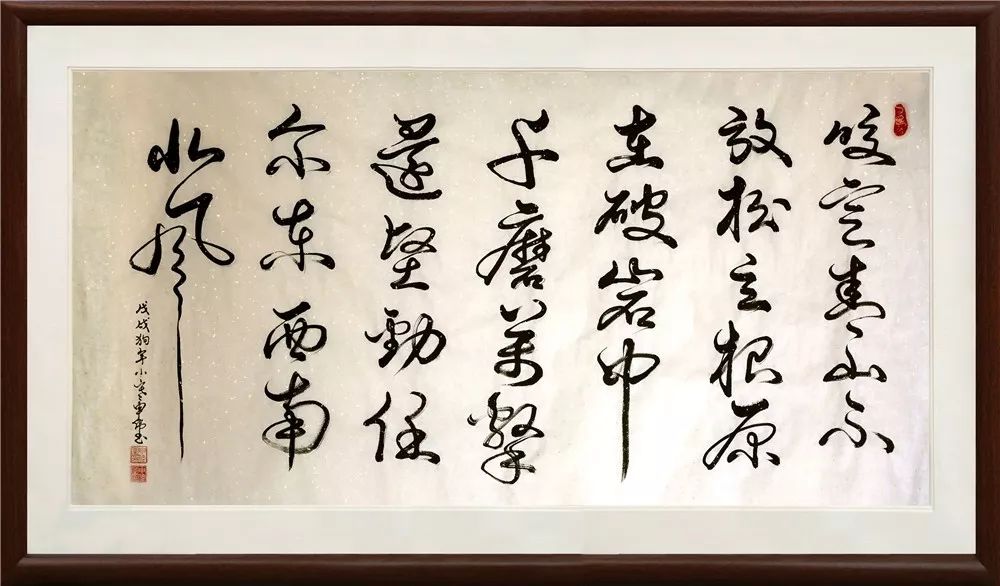 咬定青山不
放松立根原
在破岩中
千磨萬擊
還堅勁任
尔东西南
北风
戊戌狗年小寒